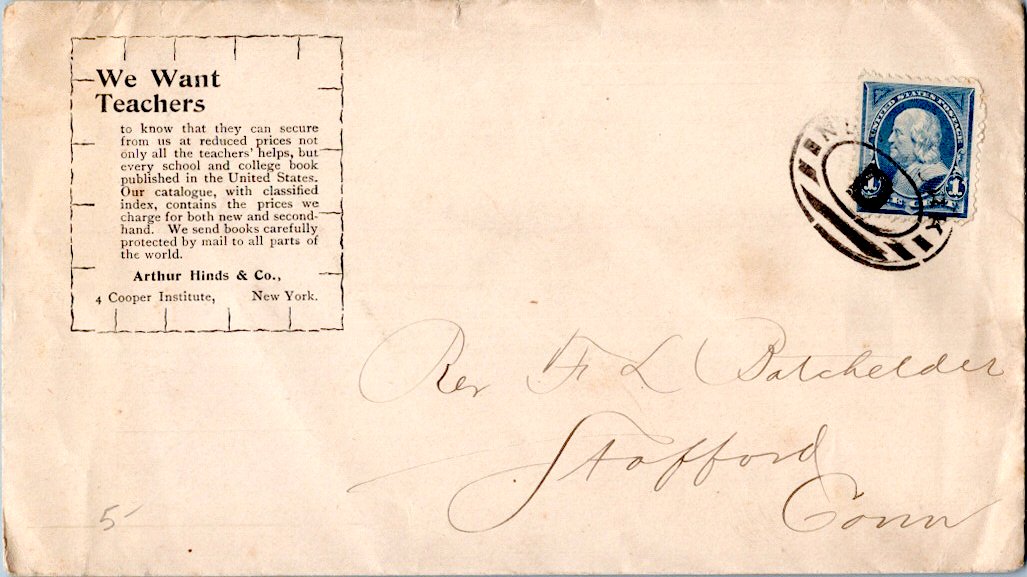 We Want
Teachers
to know that they can secure
from us at reduced prices not
only all the teachers' helps, but
every school and college book
published in the United States.
Our catalogue, with classified
index, contains the prices we
charge for both new and second-
hand. We send books carefully
protected by mail to all parts of
the world.
Arthur Hinds & Co.,
4 Cooper Institute, New York.
UNITED STATES POSTAGE
1 1
Rev F L Batchelder
Stafford
Conn
5